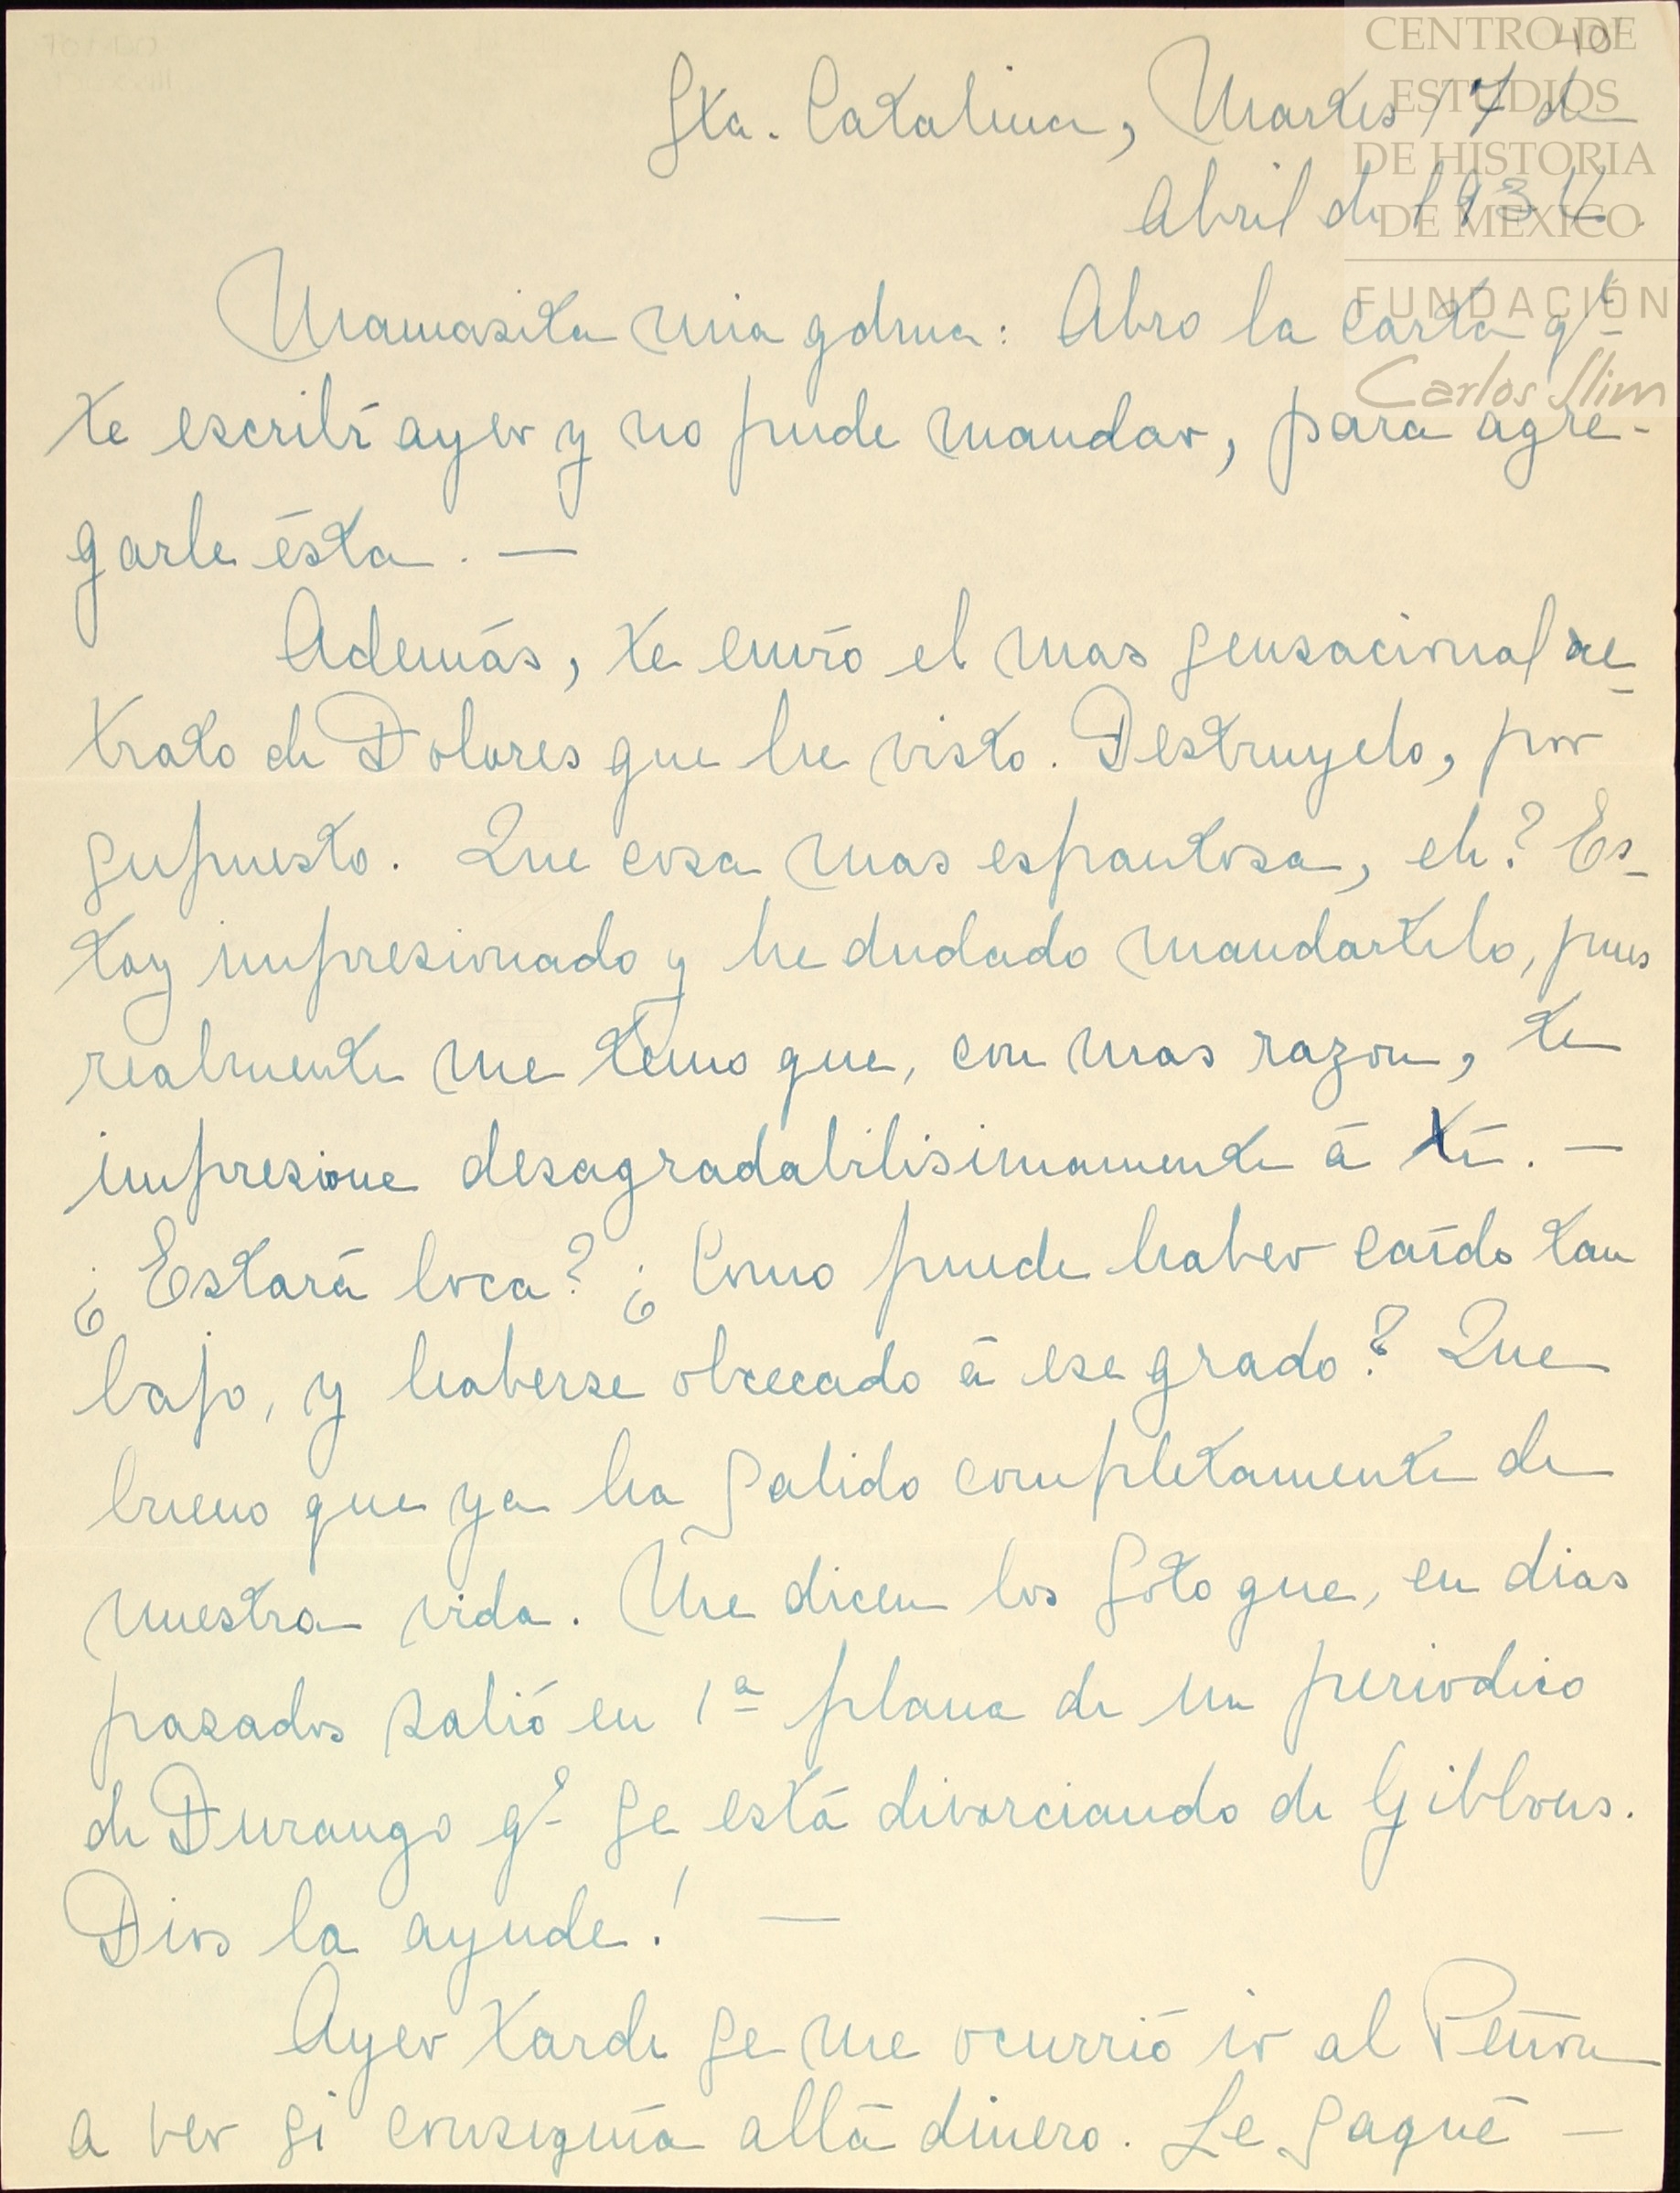 CENTRO DE
ESTUDIOS
DE HISTORIA
DE MÉXICO
FUNDACIÓN
Carlos Slim
40
Sta. Catalina, Martes 17 de
Abril de 1934.
Mamasita mia gdma: Abro la carta qe
te escribí ayer y no pude mandar, para agre-
garle ésta. —
Además, te envío el mas sensacional re-
trato de Dolores que he visto. Destruyelo, por
supuesto. Que cosa mas espantosa, eh? Es-
toy impresionado y he dudado mandartelo, pues
realmente me temo que, con mas razon, te
impresione desagradabilisimamente á tí. —
¿Estará loca? ¿Como puede haber caído tan
bajo, y haberse obcecado á ese grado? Que
bueno que ya ha salido completamente de
nuestra vida. Me dicen los Soto que, en dias
pasados salió en 1ª plana de un periodico
de Durango qe se está divorciando de Gibbons.
Dios la ayude! —
Ayer tarde se me ocurrió ir al Peñon
a ver si conseguía allá dinero. Le saqué —